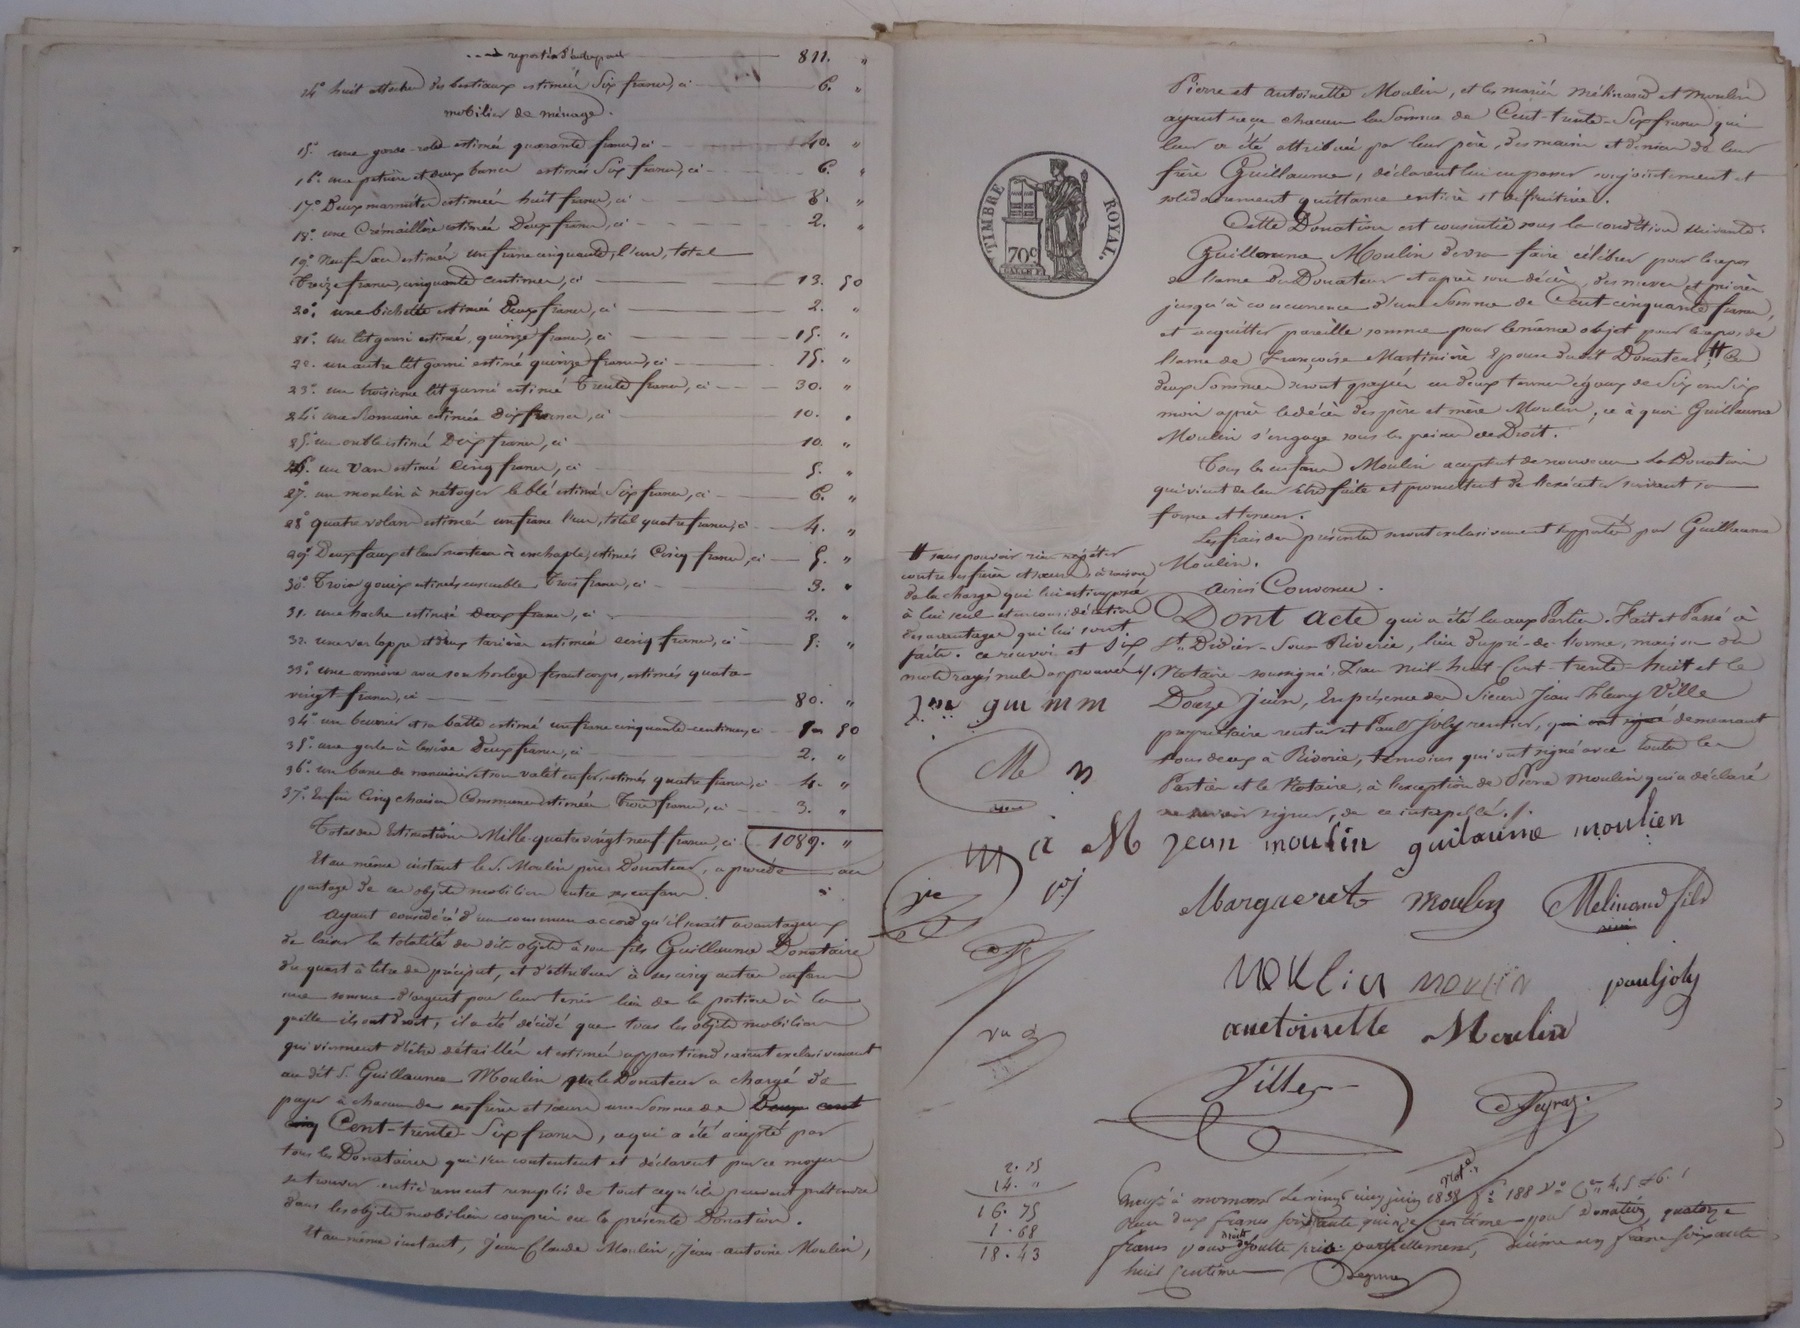 report d'autre part 811. "
14° huit attaches des bestiaux estimées Six francs, ci 6. "
mobilier de ménage.
15° une garde-robe estimée quarante francs, ci 40. "
16° une pétrière et deux bancs estimés Six francs, ci 6. "
17° Deux marmites estimées huit francs, ci 8. "
18° une Crémaillère estimée Deux francs, ci 2. "
19° neuf Sacs estimés un franc cinquante, l'un, total
Treize francs, cinquante centimes, ci 13. 50
20° une bichette estimée Deux francs, ci 2. "
21° un lit garni estimé, quinze francs, ci 15. "
22° un autre lit garni estimé quinze francs, ci 15. "
23° un troisième lit garni estimé Trente francs, ci 30. "
24° une Romaine estimée dix francs, ci 10. "
25° un estimé Dix francs, ci 10. "
26° un van estimé Cinq francs, ci 5. "
27° un moulin à nétoyer le blé estimé Six francs, ci 6. "
28° quatre volans estimés un franc l'un, total quatre francs, ci 4. "
29° Deux faux et leur marteau à enchaple, estimés Cinq francs, ci 5. "
30° Trois gouix estimés ensemble Trois francs, ci 3. "
31. une hache estimée Deux francs, ci 2. "
32. une varloppe et deux tarières estimées cinq francs, ci 5. "
33° une armoire avec son horloge faisant corps, estimés quatre-
vingt francs, ci 80. "
34° un beurrier et sa batte estimé un franc cinquante centimes, ci 1 50
35° une gerle à lessive Deux francs, ci 2. "
36° un banc de menuisier et son valet en fer, estimés quatre francs, ci 4. "
37° Enfin Cinq chaises Communes estimées Trois francs, ci 3. "
Total des Estimations Mille-quatre vingt-neuf francs, ci 1089. "
Et au même instant le S. Moulin père Donateur, a procédé au
partage de ces objets mobiliers entre ses enfans.
Ayant considéré d'un commun accord qu'il serait avantageux
de laisser la totalité des dits objets à son fils Guillaume Donataire
du quart à titre de préciput, et d'attribuer à ses cinq autres enfans
une somme d'argent pour leur tenir lieu de la portion à la
quelle ils ont droit, il a été décidé que tous les objets mobiliers
qui viennent d'être détaillés et estimés appartiendraient exclusivement
au dit S. Guillaume Moulin que le Donateur a chargé de
payer à chacun des ses frères et sœurs une Somme de Deux cent
cinq Cent-trente-Six francs, ce qui a été accepté par
tous les Donataires qui s'en contentent et déclarent par ce moyen
se trouver entièrement remplis de tout ce qu'ils peuvent prétendre
dans les objets mobiliers compris en la présente Donation.
Et au même instant, Jean-Claude Moulin, Jean-antoine Moulin,
TIMBRE ROYAL
70c
Pierre et antoinette Moulin, et les mariés Mélinand et Moulin
ayant reçu chacun la Somme de Cent-trente-Six francs qui
leur a été attribuée par leur père, des mains et deniers de leur
frère Guillaume, déclarent lui en passer conjointement et
solidairement quittance entière et définitive.
Cette Donation est consentie sous la condition suivante.
Guillaume Moulin devra faire célébrer pour le repos
de l'ame du Donateur et après son décès, des messes et prières
jusqu'à concurrence d'une Somme de Cent-cinquante francs,
et acquitter pareille somme pour le même objet pour le repos de
l'ame de Françoise Martinière Epouse dudit Donateur # Ces
deux Sommes seront payées en deux termes égaux de Six en Six
mois après le décès des père et mère Moulin, ce à quoi Guillaume
Moulin s'engage sous les peines de Droit.
Tous les enfans Moulin acceptent de nouveau la Donation
qui vient de leur être faite et promettent de l'exécuter suivant sa
forme et teneur.
Les frais des présentes seront exclusivement supportés par Guillaume
Moulin.
ainsi Convenu.
# sans pouvoir rien répéter
contre ses frères et sœurs à raison
de la charge qui lui est imposée
à lui seul et en considération
des avantages qui lui sont
faits. ce renvoi et six
mots rayés nuls approuvés ./.
Dont Acte qui a été lu aux Parties. Fait et Passé à
St. Didier-Sous-Riverie, lieu du pré-de-l'orme, maison du
Notaire soussigné, L'an mil-huit-Cent-trente-huit et le
Douze Juin, En présence des Sieurs Jean Fleury Ville
propriétaire rentier et Paul Joly rentier, qui ont signé demeurant
tous deux à Riverie, témoins qui ont signé avec toutes les
Parties et le Notaire, à l'exception de Pierre Moulin qui a déclaré
ne savoir signer, de ce interpellé./.
gui m m
M
jean moulin guilaume moulien
Margueret moulin Mélinand fils
moulin moulin paul joly
antoinette Moulin
Ville
Peyraz
2. 75
14. "
16. 75
1. 68
18. 43
Enregé à mornant le vingt cinq juin 1838 f° 188
Reçu deux francs soixante quinze centimes pour donation, quatorze
francs pour soulte partiellement, décime un franc soixante
huit centimes